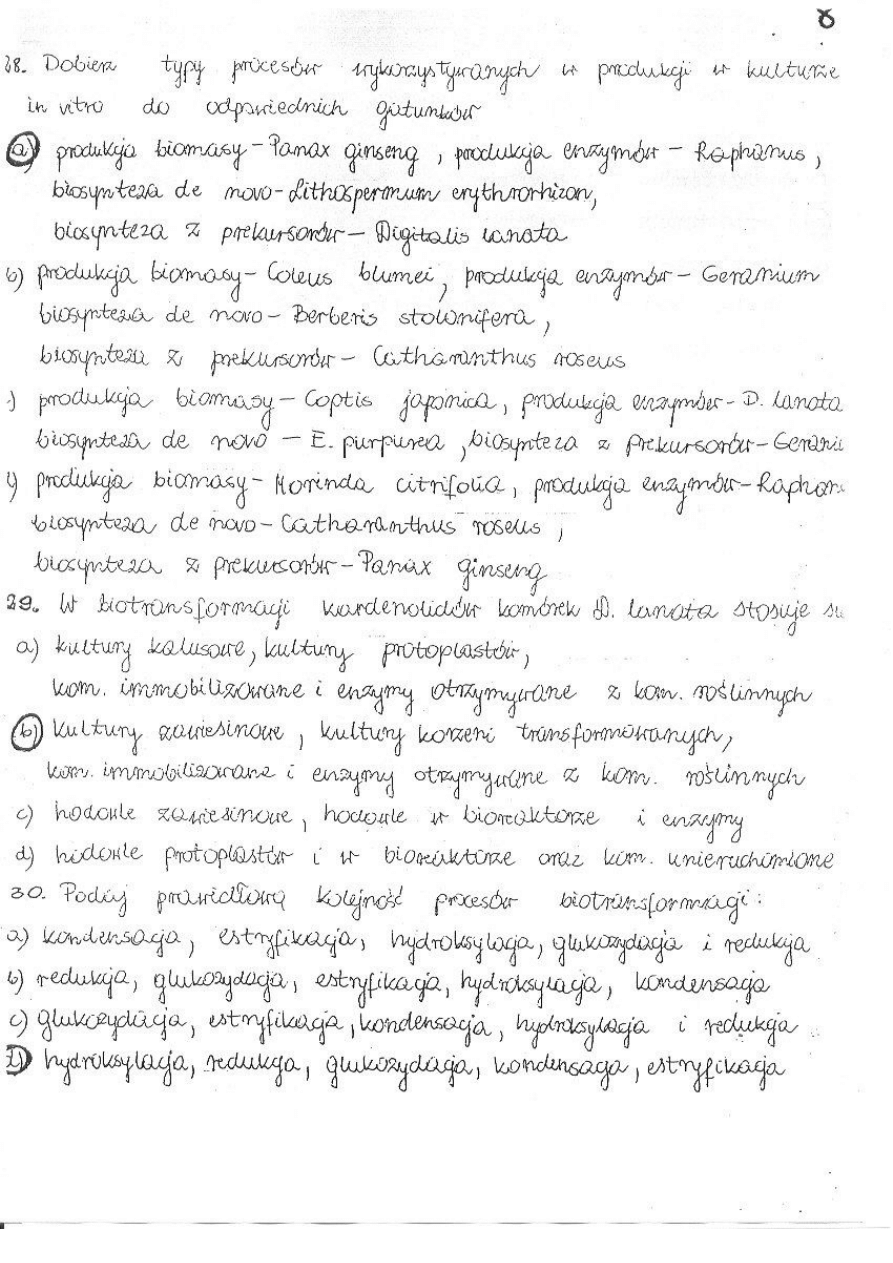 8
28. Dobierz typy procesów wykorzystywanych w produkcji w kulturze
in vitro do odpowiednich gatunków
a) produkcja biomasy – Panax ginseng, produkcja enzymów – Raphanus,
biosynteza de novo – Lithospermum erythrorhizon,
biosynteza z prekursorów – Digitalis lanata
b) produkcja biomasy – Coleus blumei, produkcja enzymów – Geranium
biosynteza de novo – Berberis stolonifera,
biosynteza z prekursorów – Catharanthus roseus
) produkcja biomasy – Coptis japonica, produkcja enzymów – D. lanata
biosynteza de novo – E. purpurea, biosynteza z prekursorów – Gerani
) produkcja biomasy – Morinda citrifolia, produkcja enzymów – Raphan
biosynteza de novo – Catharanthus roseus,
biosynteza z prekursorów – Panax ginseng
29. W biotransformacji kardenolidów komórek D. lanata stosuje si
a) kultury kalusowe, kultury protoplastów,
kom. immobilizowane i enzymy otrzymywane z kom. roślinnych
b) kultury zawiesinowe, kultury korzeni transformowanych,
kom. immobilizowane i enzymy otrzymywane z kom. roślinnych
c) hodowle zawiesinowe, hodowle w bioreaktorze i enzymy
d) hodowle protoplastów i w bioreaktorze oraz kom. unieruchomione
30. Podaj prawidłową kolejność procesów biotransformacji:
a) kondensacja, estryfikacja, hydroksylacja, glukozydacja i redukcja
b) redukcja, glukozydacja, estryfikacja, hydroksylacja, kondensacja
c) glukozydacja, estryfikacja, kondensacja, hydroksylacja i redukcja
d) hydroksylacja, redukcja, glukozydacja, kondensacja, estryfikacja